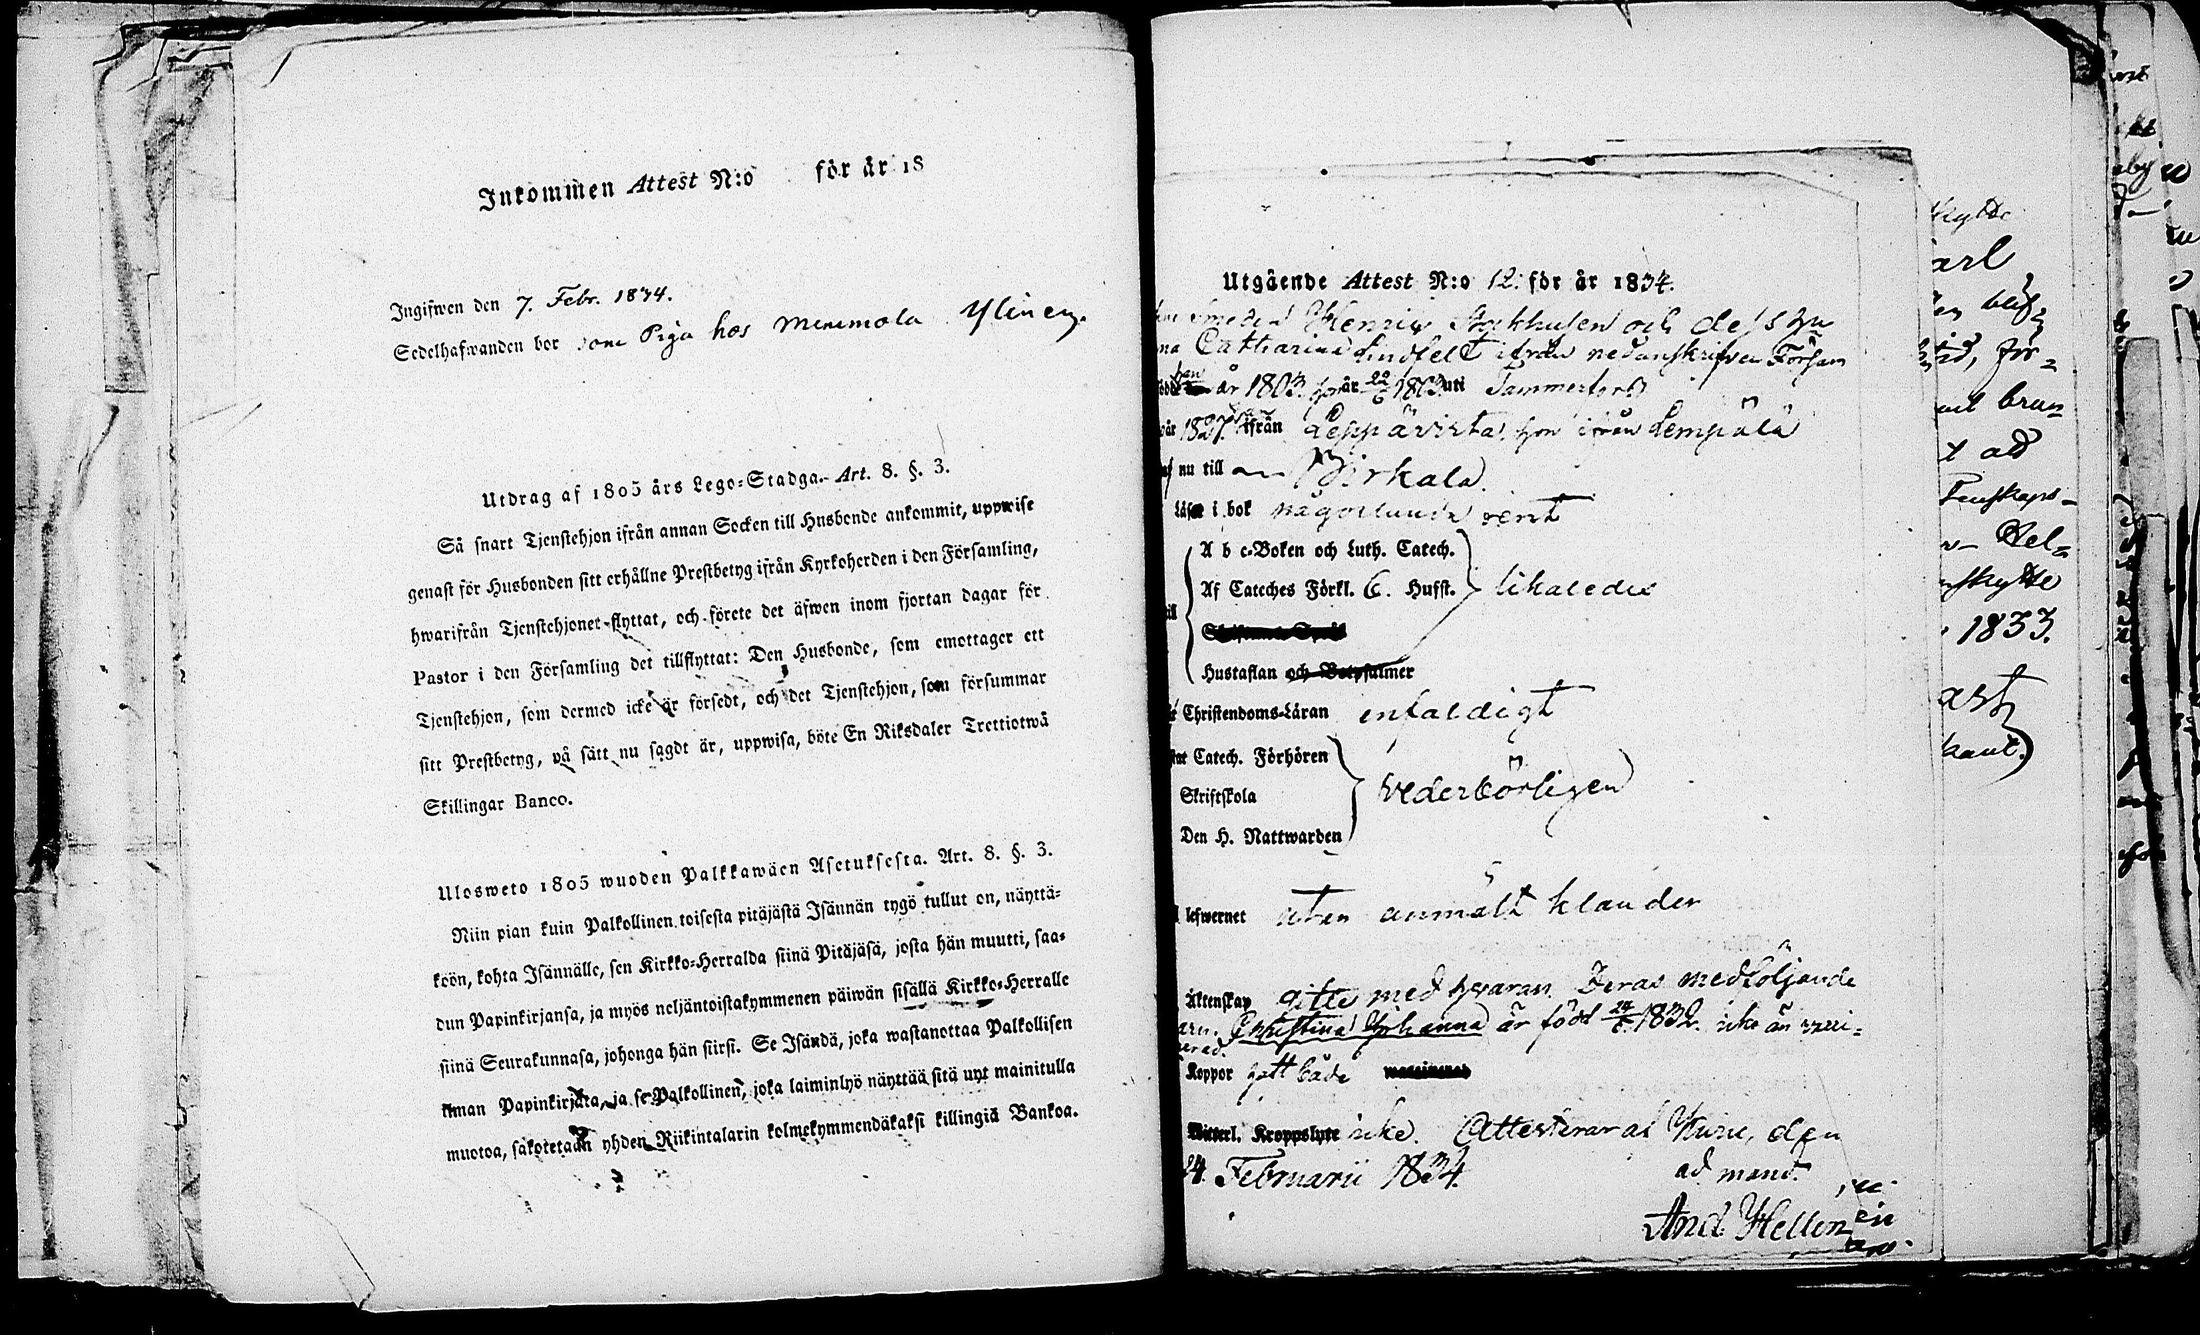 Inkommen Attest N:o för år 18
Ingifwen den 7. Febr. 1834.
Sedelhafwanden bor som Piga hos Ylinen
Utdrag af 1805 års Lego-Stadga. Art. 8. §. 3.
Så snart Tjenstehjon ifrån annan Socken till Husbonde ankommit, uppwise
genast för Husbonden sitt erhållne Prestbetyg ifrån Kyrkoherden i den Församling,
hwarifrån Tjenstehjonet flyttat, och förete det äfwen inom fjortan dagar för
Pastor i den Församling det tillflyttat: Den Husbonde, som emottager ett
Tjenstehjon, som dermed icke är försedt, och det Tjenstehjon, som försummar
sitt Prestbetyg, på sätt nu sagdt är, uppwisa, böte En Riksdaler Trettiotwå
Skillingar Banco.
Ulosweto 1805 wuoden Palkkawäen Asetuksesta. Art. 8. §. 3.
Niin pian kuin Palkollinen toisesta pitäjästä Isännän tygö tullut on, näyttä-
köön, kohta Isännälle, sen Kirkko-Herralda siinä Pitäjäsä, josta hän muutti, saa-
dun Papinkirjansa, ja myös neljäntoistakymmenen päiwän sisällä Kirkko-Herralle
siinä Seurakunnasa, johonga hän siirsi. Se Isändä, joka wastanottaa Palkollisen
ilman Papinkirjata, ja se Palkollinen, joka laiminlyö näyttää sitä nyt mainitulla
muotoa, sakotetaan yhden Riikintalarin kolmekymmendäkaksi killingiä Bankoa.
Utgående Attest N:o 12. för år 1834.
Smeden Henric Stockhusen och dess hu
Catharina Lindfelt ifrån nedanskrifven Försam
han år 1803. hon år 22/6 1803 uti Tammerfors
år 1827. ifrån Leppävirta, hon ifrån Lempälä
nu till Birkala.
Läser i bok någorlunda rent
A b c-Boken och Luth. Catech.
Af Cateches Förkl. 6. Hufst. likaledes
Hustaflan och Botpsalmer
Christendoms-Läran enfaldigt
Catech. Förhören
Skriftskola vederbörligen
Den H. Nattwarden
lefwernet utan anmält klander
Äktenskap gifte med hvaran. Deras medföljande
Christina Johanna är född 1832. icke än vacci-
nerad.
Koppor haft både
Kroppslyte icke. Attesterar af Kuru, den
24. Februarii 1834.
ad mand.
And. Hellen
1833.